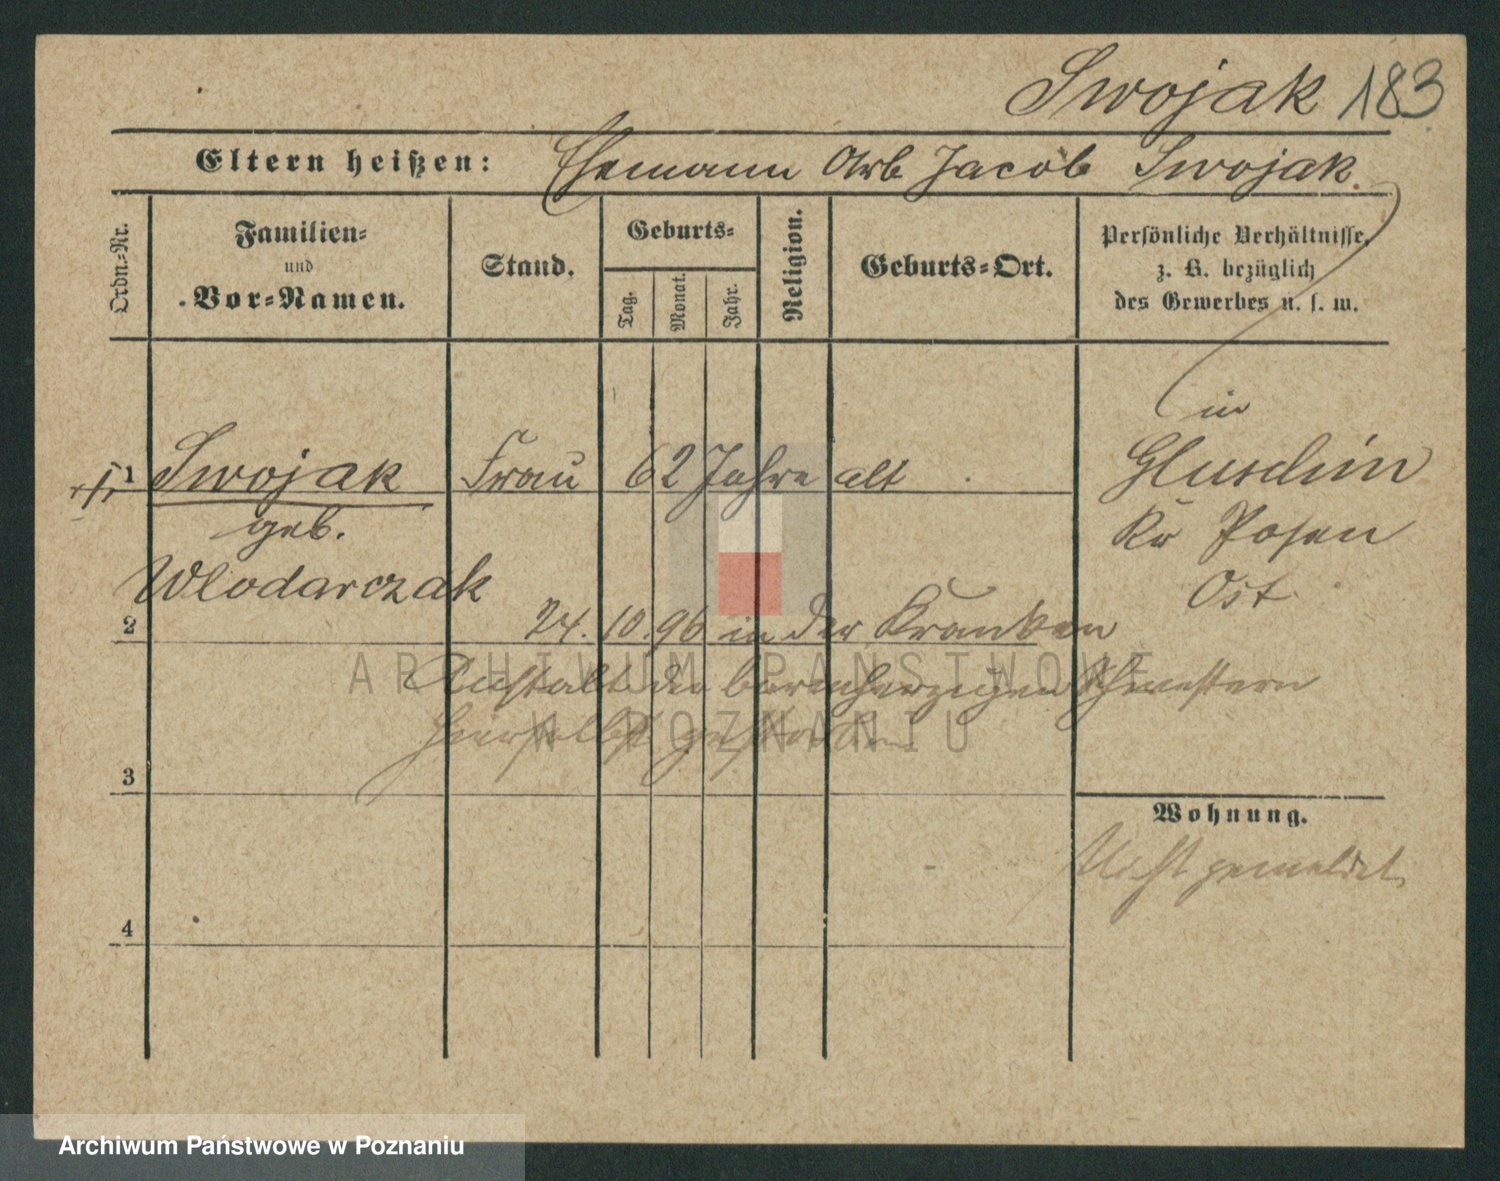 Swojak 183
Eltern heißen: Ehemann Arb Jacob Swojak.
Ordn.-Nr.
Familien-
und
Vor-Namen.
Stand.
Geburts-
Tag.
Monat.
Jahr.
Religion.
Geburts-Ort.
Persönliche Verhältnisse,
z. B. bezüglich
des Gewerbes u. s. w.
in
Gluschin
Kr Posen
Ost
1 Swojak Frau 62 Jahre alt
geb.
Wlodarczak
2 24. 10. 96 in der Kranken
Anstalt der barmherzigen Schwestern
hierselbst gestorben
3
Wohnung.
Nicht gemeldet
4
ARCHIWUM PAŃSTWOWE
W POZNANIU
Archiwum Państwowe w Poznaniu